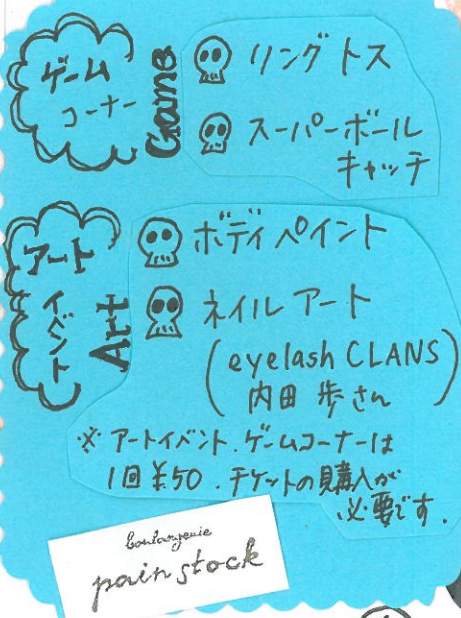 ゲーム
コーナー
Game
リングトス
スーパーボール
キャッチ
アート
イベント
Art
ボディペイント
ネイルアート
(eyelash CLANS
内田 歩さん)
※アートイベント.ゲームコーナーは
1回¥50.チケットの購入が
必要です.
boulangerie
pain stock